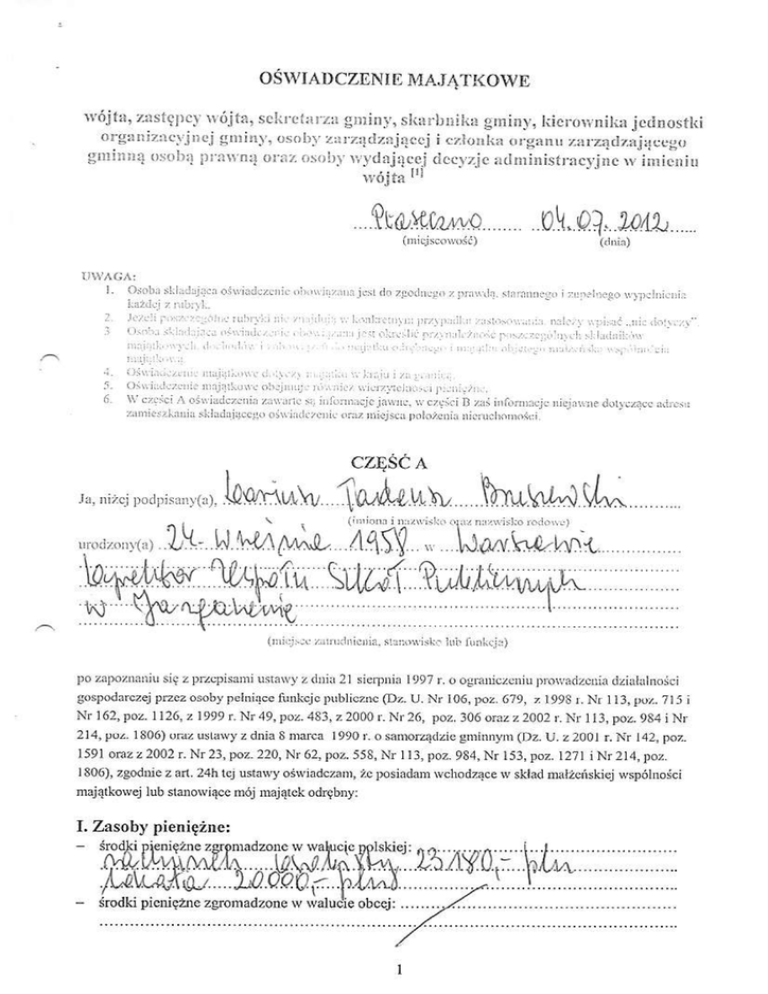 OŚWIADCZENIE MAJĄTKOWE
wójta, zastępcy wójta, sekretarza gminy, skarbnika gminy, kierownika jednostki
organizacyjnej gminy, osoby zarządzającej i członka organu zarządzającego
gminną osobą prawną oraz osoby wydającej decyzje administracyjne w imieniu
wójta [1]
Piaseczno 04.07.2012
(miejscowość) (dnia)
UWAGA:
1. Osoba składająca oświadczenie obowiązana jest do zgodnego z prawdą, starannego i zupełnego wypełnienia
każdej z rubryk.
2. Jeżeli poszczególne rubryki nie znajdują w konkretnym przypadku zastosowania, należy wpisać „nie dotyczy”.
3 Osoba składająca oświadczenie obowiązana jest określić przynależność poszczególnych składników
majątkowych, dochodów i zobowiązań do majątku odrębnego i majątku objętego małżeńską wspólnością
majątkową.
4. Oświadczenie majątkowe dotyczy majątku w kraju i za granicą.
5. Oświadczenie majątkowe obejmuje również wierzytelności pieniężne.
6. W części A oświadczenia zawarte są informacje jawne, w części B zaś informacje niejawne dotyczące adresu
zamieszkania składającego oświadczenie oraz miejsca położenia nieruchomości.
CZĘŚĆ A
Ja, niżej podpisany(a), Dariusz Tadeusz
(imiona i nazwisko oraz nazwisko rodowe)
urodzony(a) 24 września 1958 w Warszawie
Dyrektor Zespołu Szkół Publicznych
w
(miejsce zatrudnienia, stanowisko lub funkcja)
po zapoznaniu się z przepisami ustawy z dnia 21 sierpnia 1997 r. o ograniczeniu prowadzenia działalności
gospodarczej przez osoby pełniące funkcje publiczne (Dz. U. Nr 106, poz. 679, z 1998 r. Nr 113, poz. 715 i
Nr 162, poz. 1126, z 1999 r. Nr 49, poz. 483, z 2000 r. Nr 26, poz. 306 oraz z 2002 r. Nr 113, poz. 984 i Nr
214, poz. 1806) oraz ustawy z dnia 8 marca 1990 r. o samorządzie gminnym (Dz. U. z 2001 r. Nr 142, poz.
1591 oraz z 2002 r. Nr 23, poz. 220, Nr 62, poz. 558, Nr 113, poz. 984, Nr 153, poz. 1271 i Nr 214, poz.
1806), zgodnie z art. 24h tej ustawy oświadczam, że posiadam wchodzące w skład małżeńskiej wspólności
majątkowej lub stanowiące mój majątek odrębny:
I. Zasoby pieniężne:
– środki pieniężne zgromadzone w walucie polskiej:
rachunek 23180,- pln
lokata 20000,- pln
– środki pieniężne zgromadzone w walucie obcej:
1